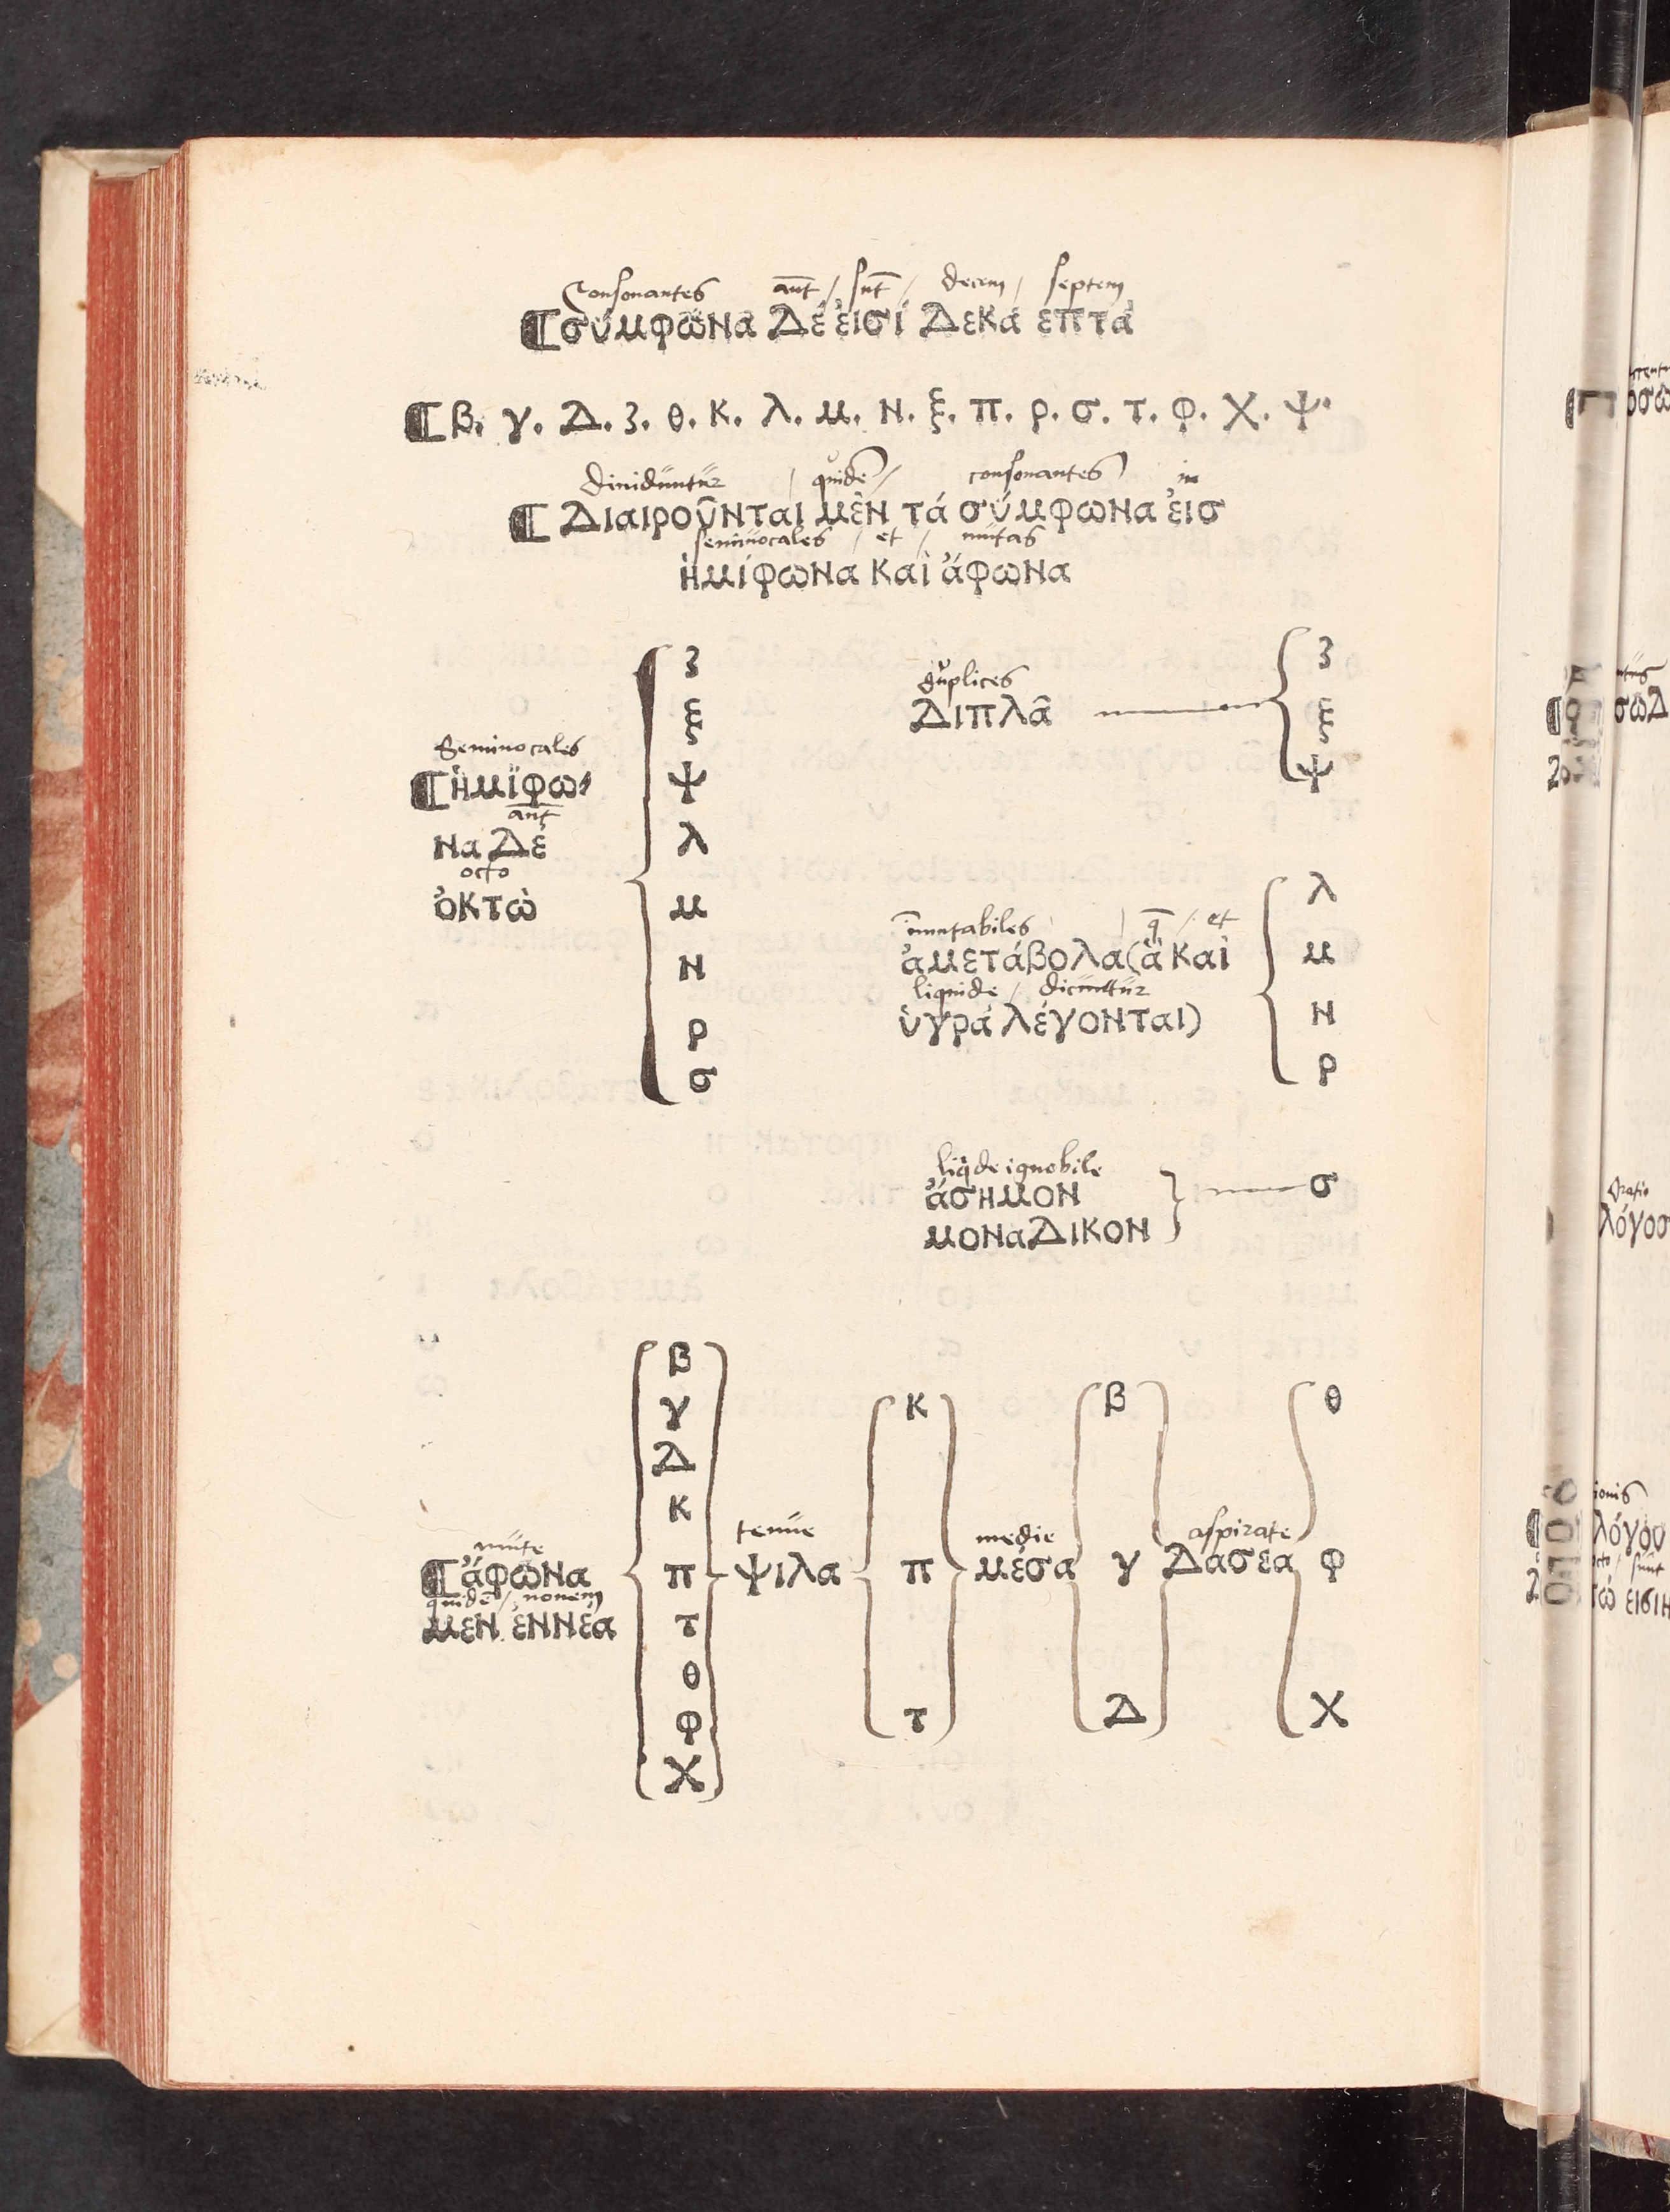 Consonantes aūt / sūt / decem / septem
σύμφωνα Δέ ἐισί Δεκά επτά
β. γ. Δ. ζ. θ. κ. λ. μ. ν. ξ. π. ρ. σ. τ. φ. χ. ψ.
diuiduntur / quidē / consonantes in
Διαιροῦνται μὲν τά σύμφωνα ἐισ
semiuocales / et / mutas
ἡμίφωνα καὶ ἄφωνα
Semiuocales
ἡμίφω
aūt
να Δὲ
octo
ὀκτὼ
ζ
ξ
ψ
λ
μ
ν
ρ
σ
duplices
Διπλᾶ
ζ
ξ
ψ
īmutabiles / q̄ / et
ἀμετάβολα(ἃ καὶ
liquide / dicuntur
ὑγρά λέγονται)
λ
μ
ν
ρ
liq̇de ignobile
ἄσημον
μοναΔικον
σ
mute
ἄφωνα
quidē / nouem
μεν ἐννέα
β
γ
Δ
κ
π
τ
θ
φ
χ
tenue
ψιλα
κ
π
τ
medie
μέσα
β
γ
Δ
aspirate
Δασεα
θ
φ
χ
λόγοσ
λόγου